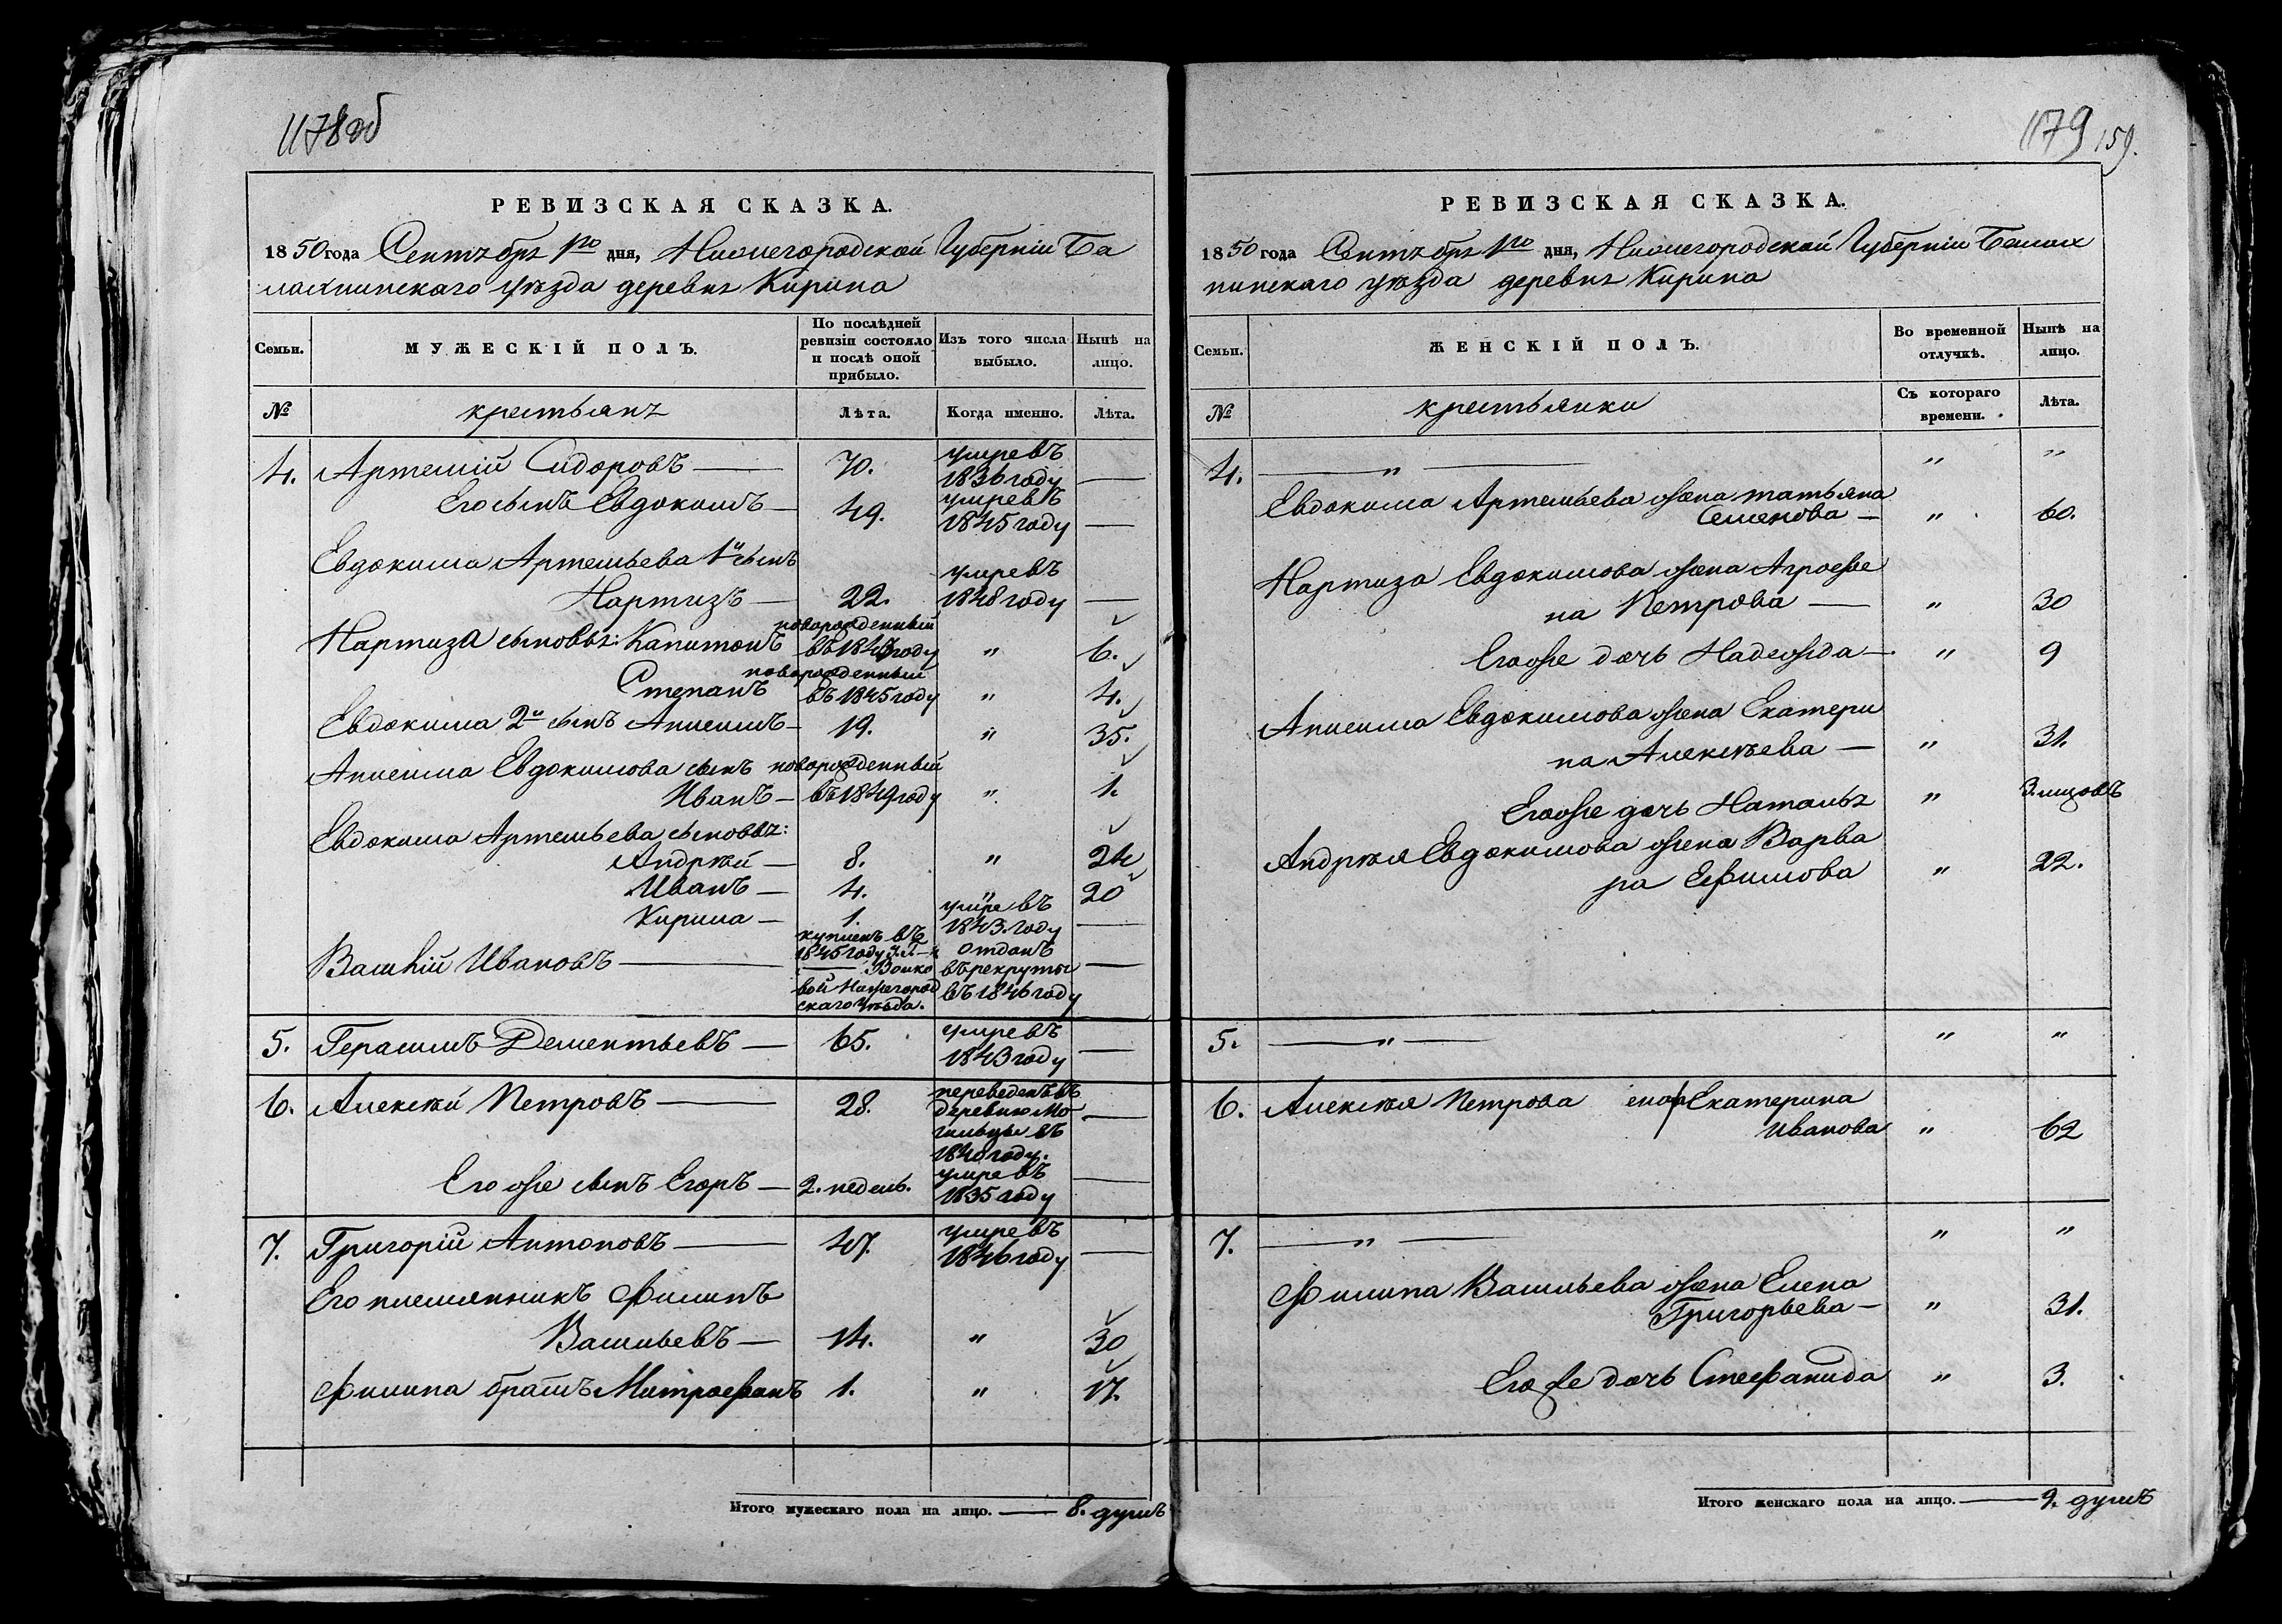 1178об
РЕВИЗСКАЯ СКАЗКА.
1850 года Сентября 1го дня, Нижегородской Губерніи Ба
лахнинскаго уѣзда деревня Кирина
Семьи.
МУЖЕСКІЙ ПОЛЪ.
По послѣдней
ревизіи состояло
и послѣ оной
прибыло.
Изъ того числа
выбыло.
Нынѣ на
лицо.
№
крестьянъ
Лѣта.
Когда именно.
Лѣта.
4. Артемій Сидоровъ — 70. умревъ
1836 году —
Его сынъ Евдокимъ — 49. умревъ
1845 году —
Евдокима Артемьева 1й сынъ
Нартизъ — 22. умревъ
1848 году —
Нартиза сыновья: Капитонъ новорожденный
въ 1843 году " 6.
Степанъ новорожденный
въ 1845 году " 4.
Евдокима 2й сынъ Анисимъ — 19. " 35.
Анисима Евдокимова сынъ новорожденный
Иванъ — въ 1849 году " 1.
Евдокима Артемьева сыновья:
Андрѣй — 8. " 24
Иванъ — 4. " 20
Кирила — 1. умревъ
1843. году —
Василій Ивановъ — купленъ въ
1845 году
Волко
вой Нижегород
скаго уѣзда.
отданъ
въ рекруты
въ 1846 году —
5. Герасимъ Дементьевъ — 65. умревъ
1843 году —
6. Алексѣй Петровъ — 28. переведенъ въ
деревню Мо
гильцы въ
1840 году. —
Его же сынъ Егоръ — 2. недель. умревъ
1835 году —
7. Григорій Антоновъ — 47. умревъ
1846 году —
Его племянникъ Филипъ
Васильевъ — 14. " 30
Филипа братъ Митрофанъ 1. " 17.
Итого мужескаго пола на лицо. — 8. душъ
1179 159.
РЕВИЗСКАЯ СКАЗКА.
1850 года Сентября 1го дня, Нижегородской Губерніи Балах
нинскаго уѣзда деревня Кирина
Семьи.
ЖЕНСКІЙ ПОЛЪ.
Во временной
отлучкѣ.
Нынѣ на
лицо.
№
крестьянки
Съ котораго
времени.
Лѣта.
4. — " — " "
Евдокима Артемьева жена Татьяна
Семенова — " 60.
Нартиза Евдокимова жена Агрофе
на Петрова — " 30
Его же дочь Надежда — " 9
Анисима Евдокимова жена Екатери
на Алексѣева — " 31.
Его же дочь Наталья " 3. мцовъ
Андрѣя Евдокимова жена Варва
ра Ефимова " 22.
5. — " — " "
6. Алексѣя Петрова Екатерина
Иванова " 62
7. — " — " "
Филипа Васильева жена Елена
Григорьева — " 31.
Его же дочь Стефанида " 3.
Итого женскаго пола на лицо. — 9. душъ